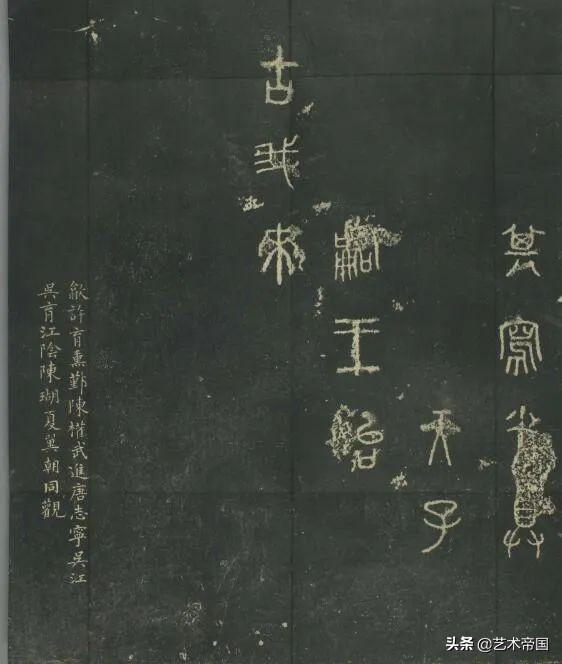 其寫小具
天子
嗣王始
古我來
歙許育熏鄞陳權武進唐志寧吳江
吳育江陰陳瑚夏翼朝同觀
头条 @艺术帝国